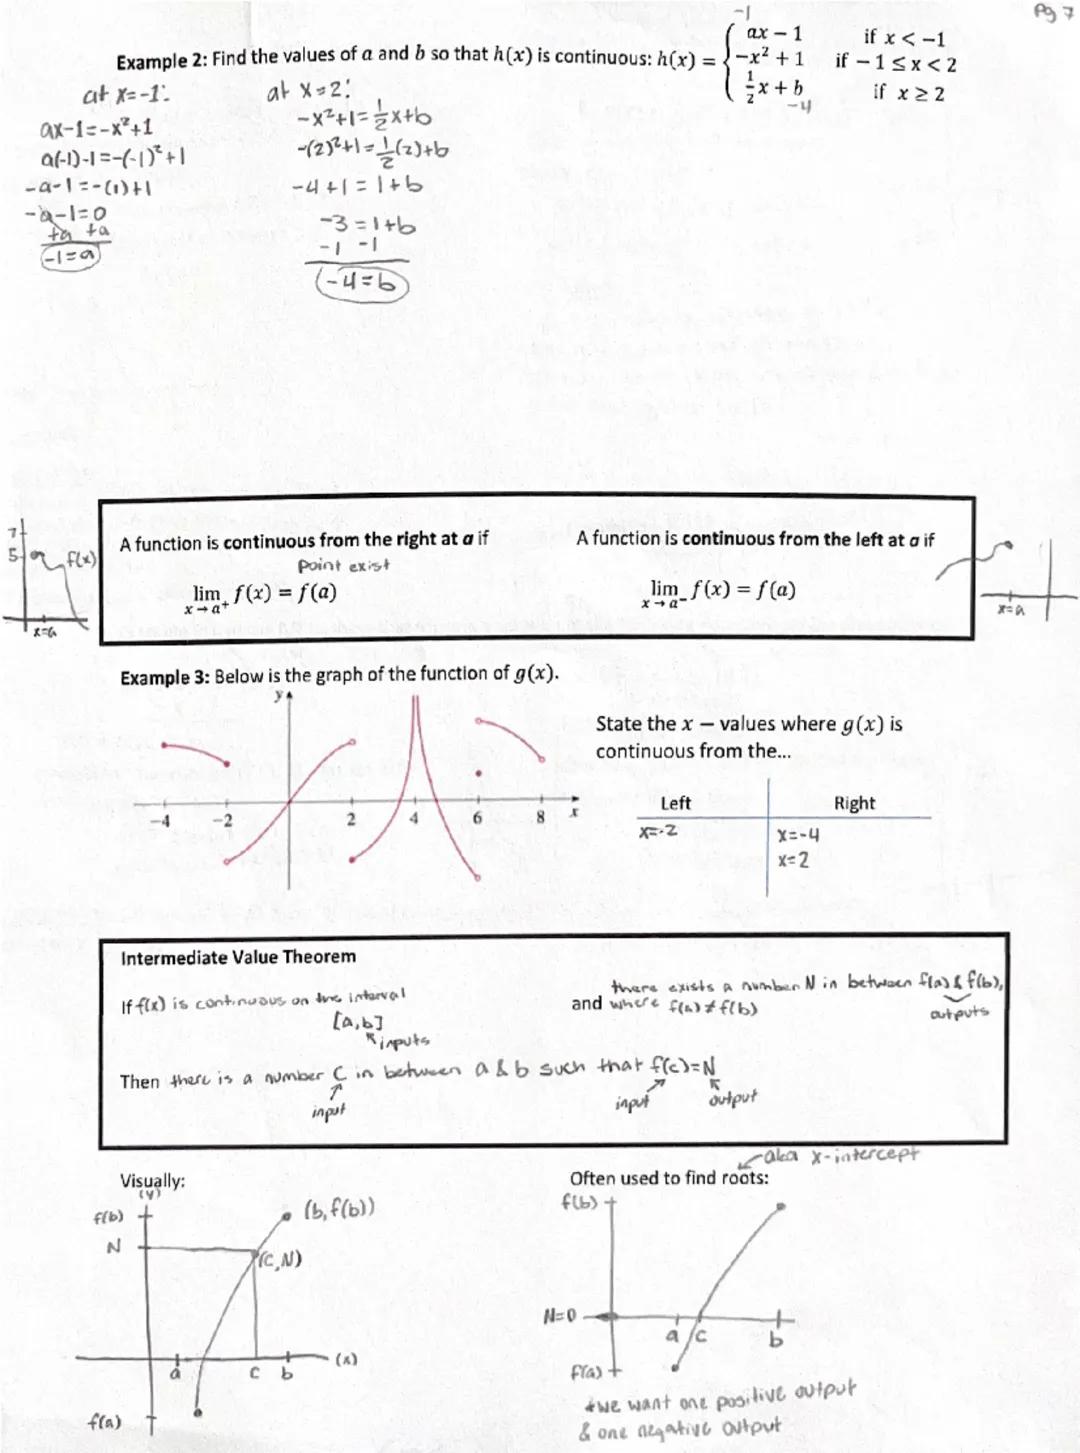 Pg 7
-1
Example 2: Find the values of a and b so that h(x) is continuous: h(x) = { ax − 1 if x < −1
−x² + 1 if − 1 ≤ x < 2
½x + b if x ≥ 2
-4
at x=-1:
ax-1=-x²+1
a(-1)-1=-(-1)²+1
-a-1=-(1)+1
-a-1=0
+a +a
-1=a
at x=2:
-x²+1=½x+b
-(2)²+1=½(2)+b
-4+1=1+b
-3=1+b
-1 -1
-4=b
7
5
f(x)
x=a
A function is continuous from the right at a if
point exist
lim x→a⁺ f(x) = f(a)
A function is continuous from the left at a if
lim x→a⁻ f(x) = f(a)
x=a
Example 3: Below is the graph of the function of g(x).
y
-4 -2 2 4 6 8 x
State the x − values where g(x) is
continuous from the...
Left Right
x=-2 x=-4
x=2
Intermediate Value Theorem
If f(x) is continuous on the interval
[a,b]
inputs
there exists a number N in between f(a) & f(b),
and where f(a)≠f(b)
outputs
Then there is a number C in between a & b such that f(c)=N
input
input output
Visually:
(y)
f(b)
(b, f(b))
N
(C,N)
a c b (x)
f(a)
aka x-intercept
Often used to find roots:
f(b)
N=0
a c b
f(a)
*we want one positive output
& one negative output